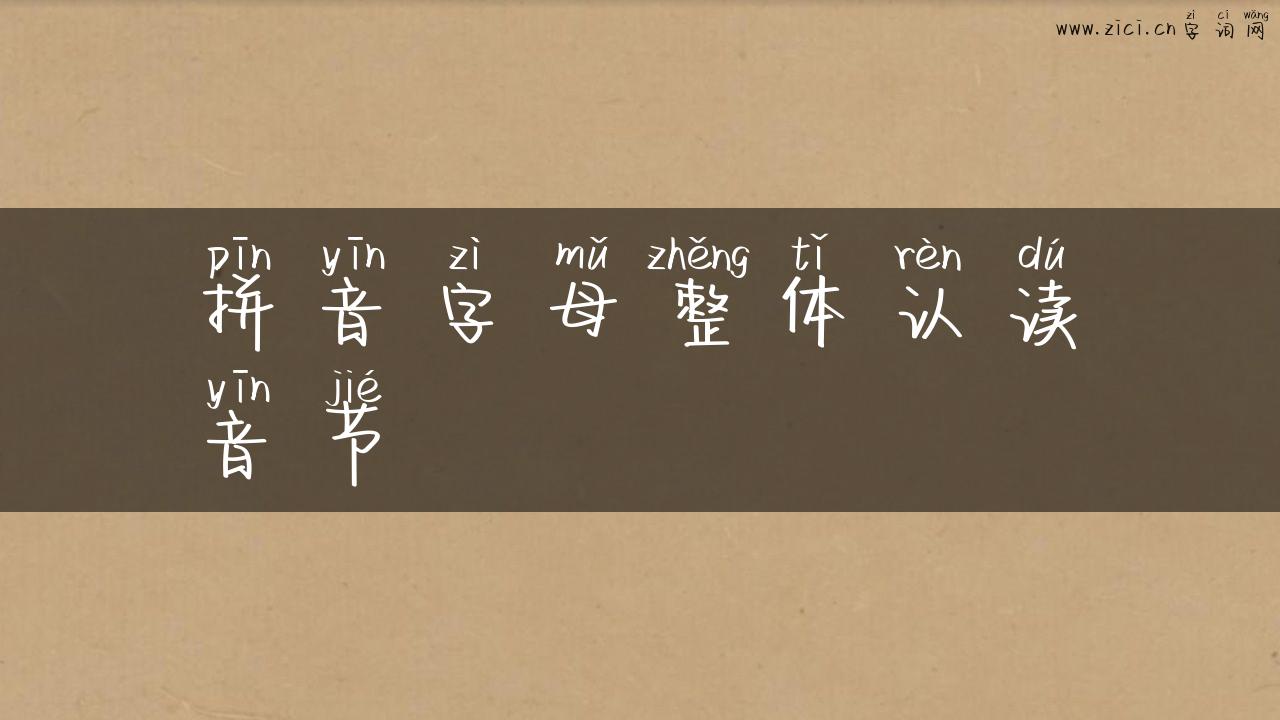 zì cí wǎng
www.zici.cn 字 词 网
pīn yīn zì mǔ zhěng tǐ rèn dú
拼 音 字 母 整 体 认 读
yīn jié
音 节